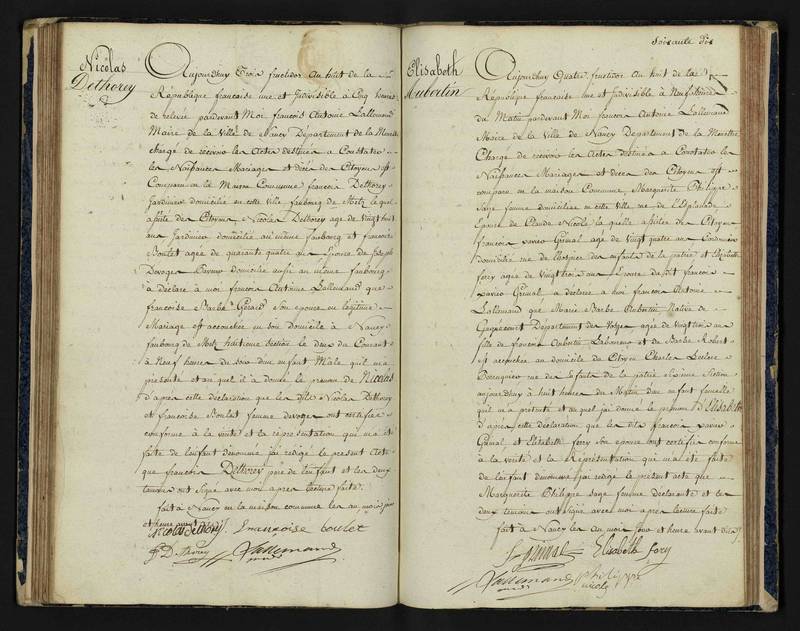 Nicolas
Dethorey
Aujourdhuy Trois fructidor an huit de la
République francaise une et Indivisible à Cinq heures
de relevé pardevant Moi francois Antoine Lallemand
Maire de la Ville de Nancy Departement de la Meurthe
chargé de recevoir les Actes destinés à Constater
les Naissances Mariages et décès des Citoyens est
Comparu en la Maison Commune francois Dethorey
Jardinier domicilié en cette Ville faubourg de Metz le quel
assisté des Citoyens Nicolas Dethorey agé de Vingt huit
ans Jardinier domicilié au même faubourg et francoise
Boulet agée de quarante quatre ans Epouse de Joseph
Devoges domicilié aussi au même faubourg
à déclaré à moi francois Antoine Lallemand que
francoise Barbe Gerard Son epouse en legitime
Mariage est accouchée en son domicile à Nancy
faubourg de Metz huitieme Section le deux du Courant
à Neuf heures du soir d'un enfant Mâle quil m'a
présenté et au quel il à donné le prenom de Nicolas
d'après cette déclaration que les dits Nicolas Dethorey
et francoise Boulet femme devoges ont certifiée
conforme à la verité et la répresentation qui m'a été
faite de l'enfant denommé j'ai redigé le present Acte
que francois Dethorey pere de l'enfant et les deux
temoins ont signé avec moi apres lecture faite
fait à Nancy en la maison commune les an mois jour
et heure avant dits
Nicolas Dethorey francoise boulet
f Dethorey Lallemand
Soixante dix
Elisabeth
Aubertin
Aujourdhuy Quatre fructidor an huit de la
République francaise une et Indivisible à Neuf heures
du Matin pardevant Moi francois Antoine Lallemand
Maire de la Ville de Nancy Departement de la Meurthe
Chargé de recevoir les Actes destinés à Constater les
Naissances Mariages et décès des Citoyens est
comparu en la maison Commune, Marguerite Philippe
Sage femme domiciliée en cette Ville rue de l'Esplanade
Epouse de Claude Nicole la quelle assistée des Citoyens
francois xavier Grinal agé de Vingt quatre ans Cordonnier
domicilié rue de des enfans de la patrie et Elisabeth
forey agée de Vingt trois ans Epouse dudit francois
xavier Grinal, a declaré à moi francois Antoine
Lallemand que Marie Barbe Aubertin Native de
Gugnecourt Departement des Vosges agée de vingt trois ans
fille de francois Aubertin Laboureur et de Barbe Robert
est accouchée au domicile du Citoyen Charles Leclerc
Perruquier rue des enfants de la patrie Sixieme Section
aujourdhuy à huit heures du Matin d'un enfant femelle
quil m'a présenté et auquel j'ai donné le prenom d'Elisabeth
d'apres cette déclaration que les dits francois xavier
Grinal et Elisabeth forey son epouse ont certifiée conforme
à la verité et la Répresentation qui m'a été faite
de l'enfant denommé j'ai redigé le present acte que
Marguerite Philippe sage femme déclarante et les
deux temoins ont signé avec moi apres lecture faite
fait à Nancy les an mois jour et heure avant dits
Elisabeth forey
Lallemand philippe
nicole